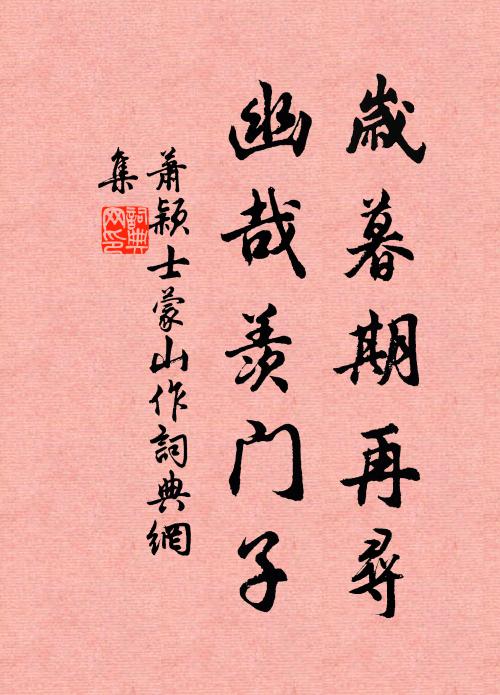 歲暮期再尋
幽哉羨门子
蕭穎士蒙山作詞典網
集
詞典
网印